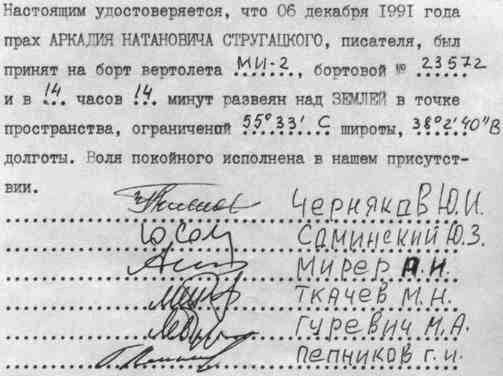 Настоящим удостоверяется, что 06 декабря 1991 года
прах АРКАДИЯ НАТАНОВИЧА СТРУГАЦКОГО, писателя, был
принят на борт вертолета МИ-2, бортовой № 23572
и в 14 часов 14 минут развеян над ЗЕМЛЕЙ в точке
пространства, ограниченой 55°33' С широты, 38°2'40"В
долготы. Воля покойного исполнена в нашем присутст-
вии.
Черняков Ю.И.
Ю.Сам Саминский Ю.З.
Мирер А.И.
Ткачев М.Н.
Гуревич М.А.
Пепников Г.И.